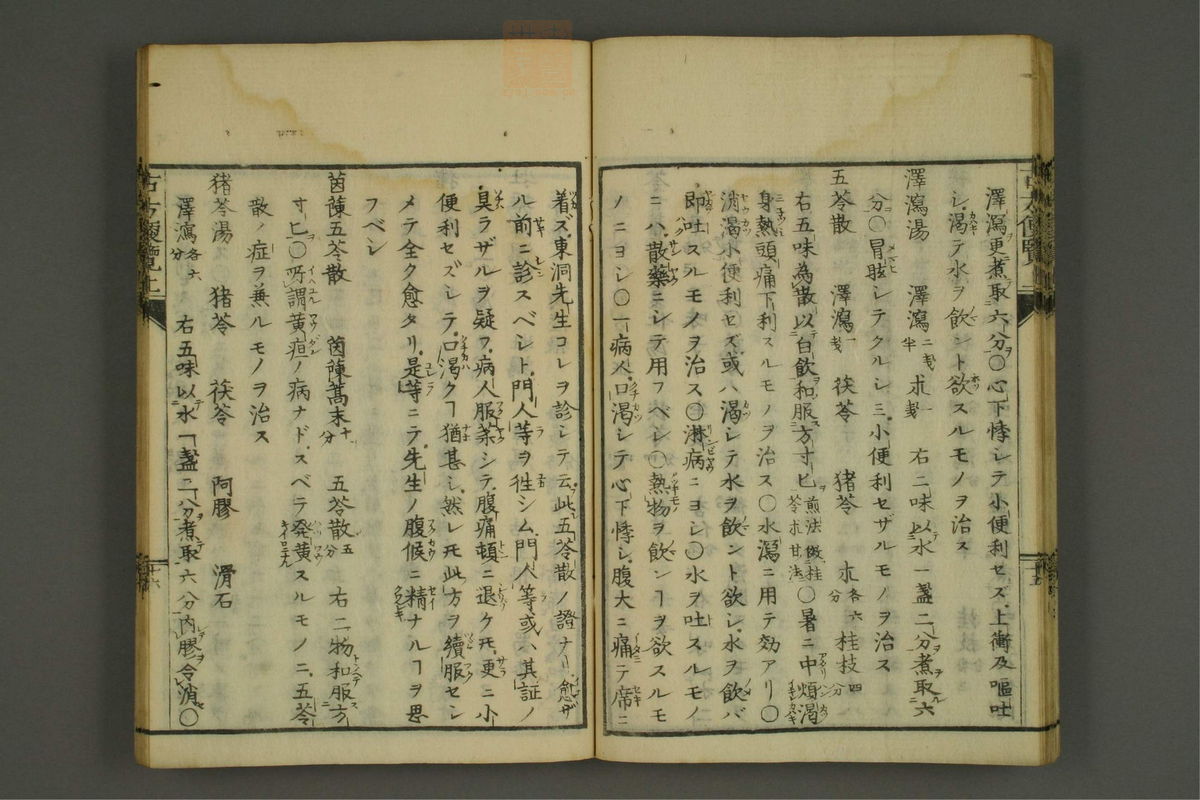 澤瀉更煮取六分〇心下悸シテ小便利セズ上衝及嘔吐
シ渇テ水ヲ飲ント欲スルモノヲ治ス
澤瀉湯　澤瀉二戔半　朮一戔　右二味以水一盞二分煮取六
分〇冒眩シテクルシミ小便利セザルモノヲ治ス
五苓散　澤瀉一戔　茯苓　猪苓　朮各六分　桂枝四分
右五味為散以白飲和服方寸匕　煎法倣桂苓朮甘法〇暑ニ中煩渇
身熱頭痛下利スルモノヲ治ス〇水瀉ニ用テ効アリ〇
消渇小便利セズ或ハ渇シテ水ヲ飲ント欲シ水ヲ飲バ
即吐スルモノヲ治ス〇淋病ニヨシ〇水ヲ吐スルモノ
ニハ散藥ニシテ用フベシ〇熱物ヲ飲ンヿヲ欲スルモ
ノニヨシ〇一病人口渇シテ心下悸シ腹大ニ痛テ席ニ
着ズ東洞先生コレヲ診シテ云此五苓散ノ證ナリ愈ザ
ル前ニ診スベシト門人等ヲ徃シム門人等或ハ其証ノ
臭ラザルヲ疑フ病人服藥シテ腹痛頓ニ退ケ𪜈更ニ小
便利セズシテ口渇クヿ猶甚シ然レ𪜈此方ヲ續服セシ
メテ全ク愈タリ是等ニテ先生ノ腹候ニ精ナルヿヲ思
フベシ
茵陳五苓散　茵陳蒿末十分　五苓散五分　右二物和服方
寸匕〇所謂黄疸ノ病ナドスベテ発黄スルモノニ五苓
散ノ症ヲ兼ルモノヲ治ス
猪苓湯　猪苓　茯苓　阿膠　滑石
澤瀉各六分　右五味以水一盞二分煮取六分内膠令消〇